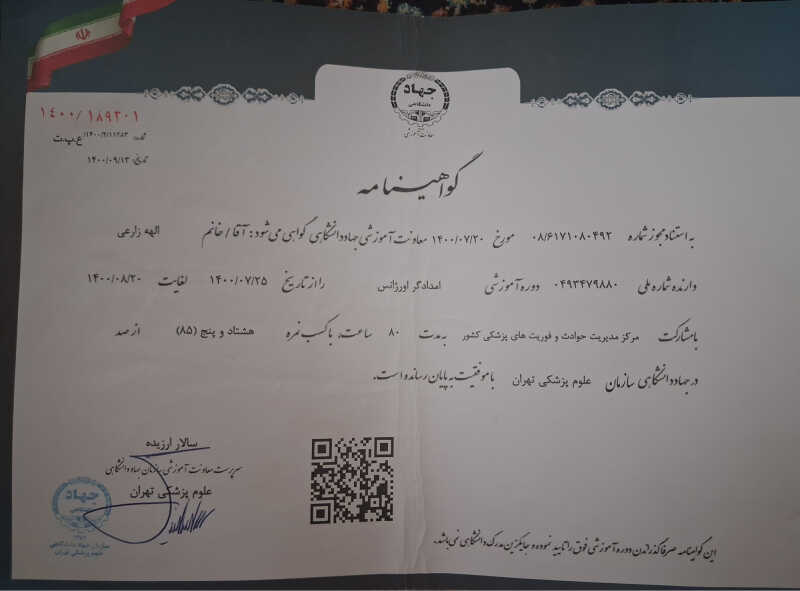 جهاد
دانشگاهی
معاونت آموزشی
۱۴۰۰/ ۱۸۹۳۰۱
ع.پ.ت
تاریخ: ۱۴۰۰/۰۹/۱۳
گواهینامه
به استناد مجوز شماره ۰۸/۶۱۷۱۰۸۰۴۹۲ مورخ ۱۴۰۰/۰۷/۲۰ معاونت آموزشی جهاددانشگاهی گواهی می‌شود: آقا / خانم الهه زارعی
دارنده شماره ملی ۰۴۹۳۴۷۹۸۸۰ دوره آموزشی امدادگر اورژانس را از تاریخ ۱۴۰۰/۰۷/۲۵ لغایت ۱۴۰۰/۰۸/۲۰
با مشارکت مرکز مدیریت حوادث و فوریت های پزشکی کشور به مدت ۸۰ ساعت، با کسب نمره هشتاد و پنج (۸۵) از صد
در جهاددانشگاهی سازمان علوم پزشکی تهران با موفقیت به پایان رسانده است.
سالار ارزیده
سرپرست معاونت آموزشی سازمان جهاددانشگاهی
علوم پزشکی تهران
جهاد
دانشگاهی
سازمان جهاد دانشگاهی
علوم پزشکی تهران
این گواهینامه صرفا گذراندن دوره آموزشی فوق را تایید نموده و جایگزین مدرک دانشگاهی نمی‌باشد.